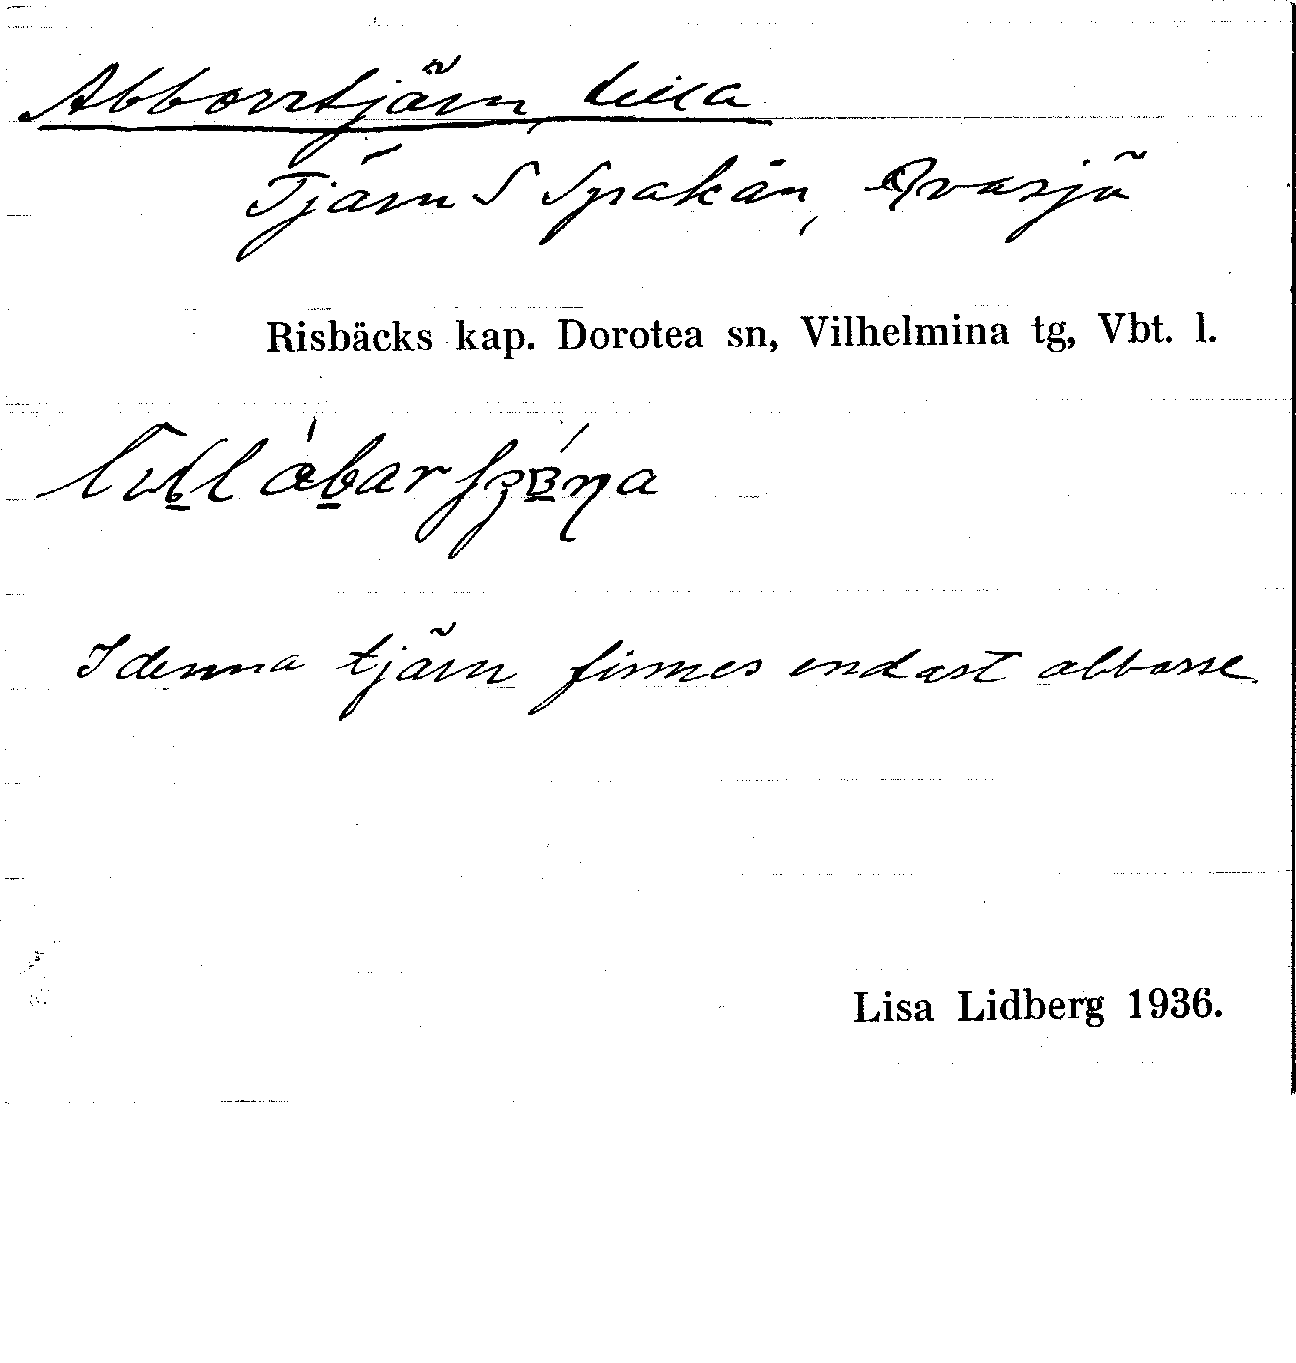 Abborrtjärn, Lilla
Tjärn S Spakån, Avasjö
Risbäcks kap. Dorotea sn, Vilhelmina tg, Vbt. l.
I denna tjärn finnes endast abborre
Lisa Lidberg 1936.